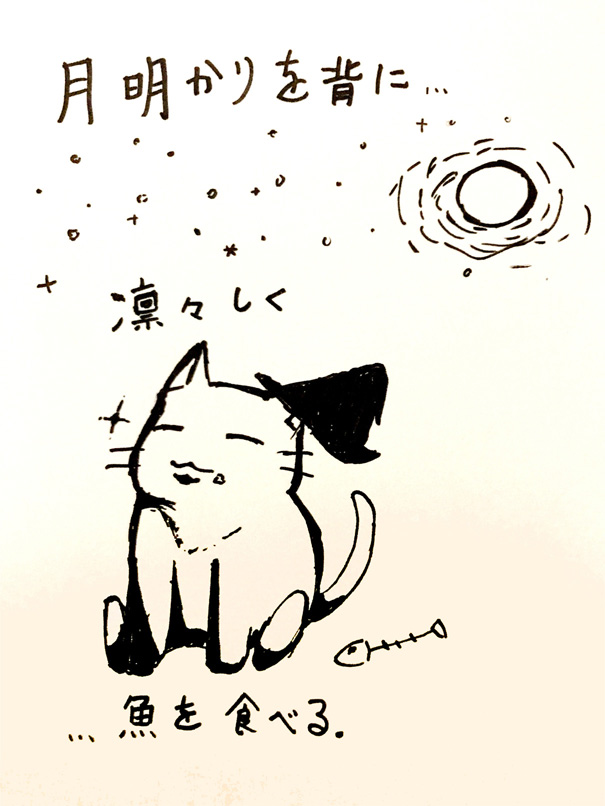 月明かりを背に…
凛々しく
…魚を食べる.